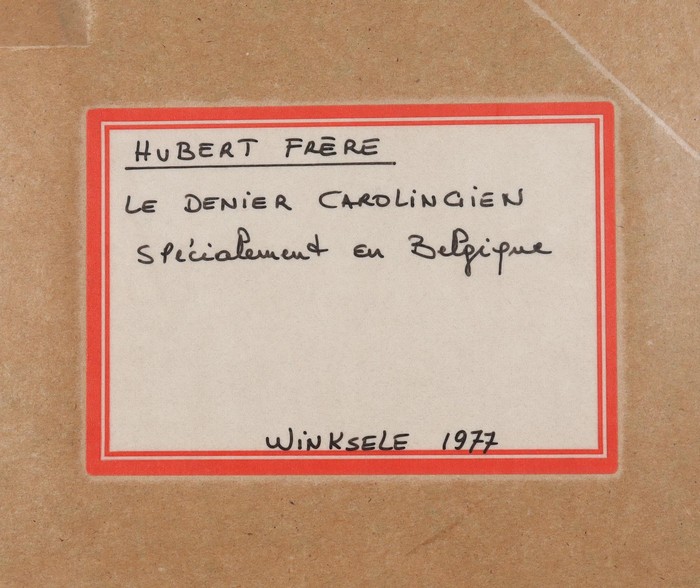 HUBERT FRÈRE
LE DENIER CAROLINGIEN
Spécialement en Belgique
WINKSELE 1977